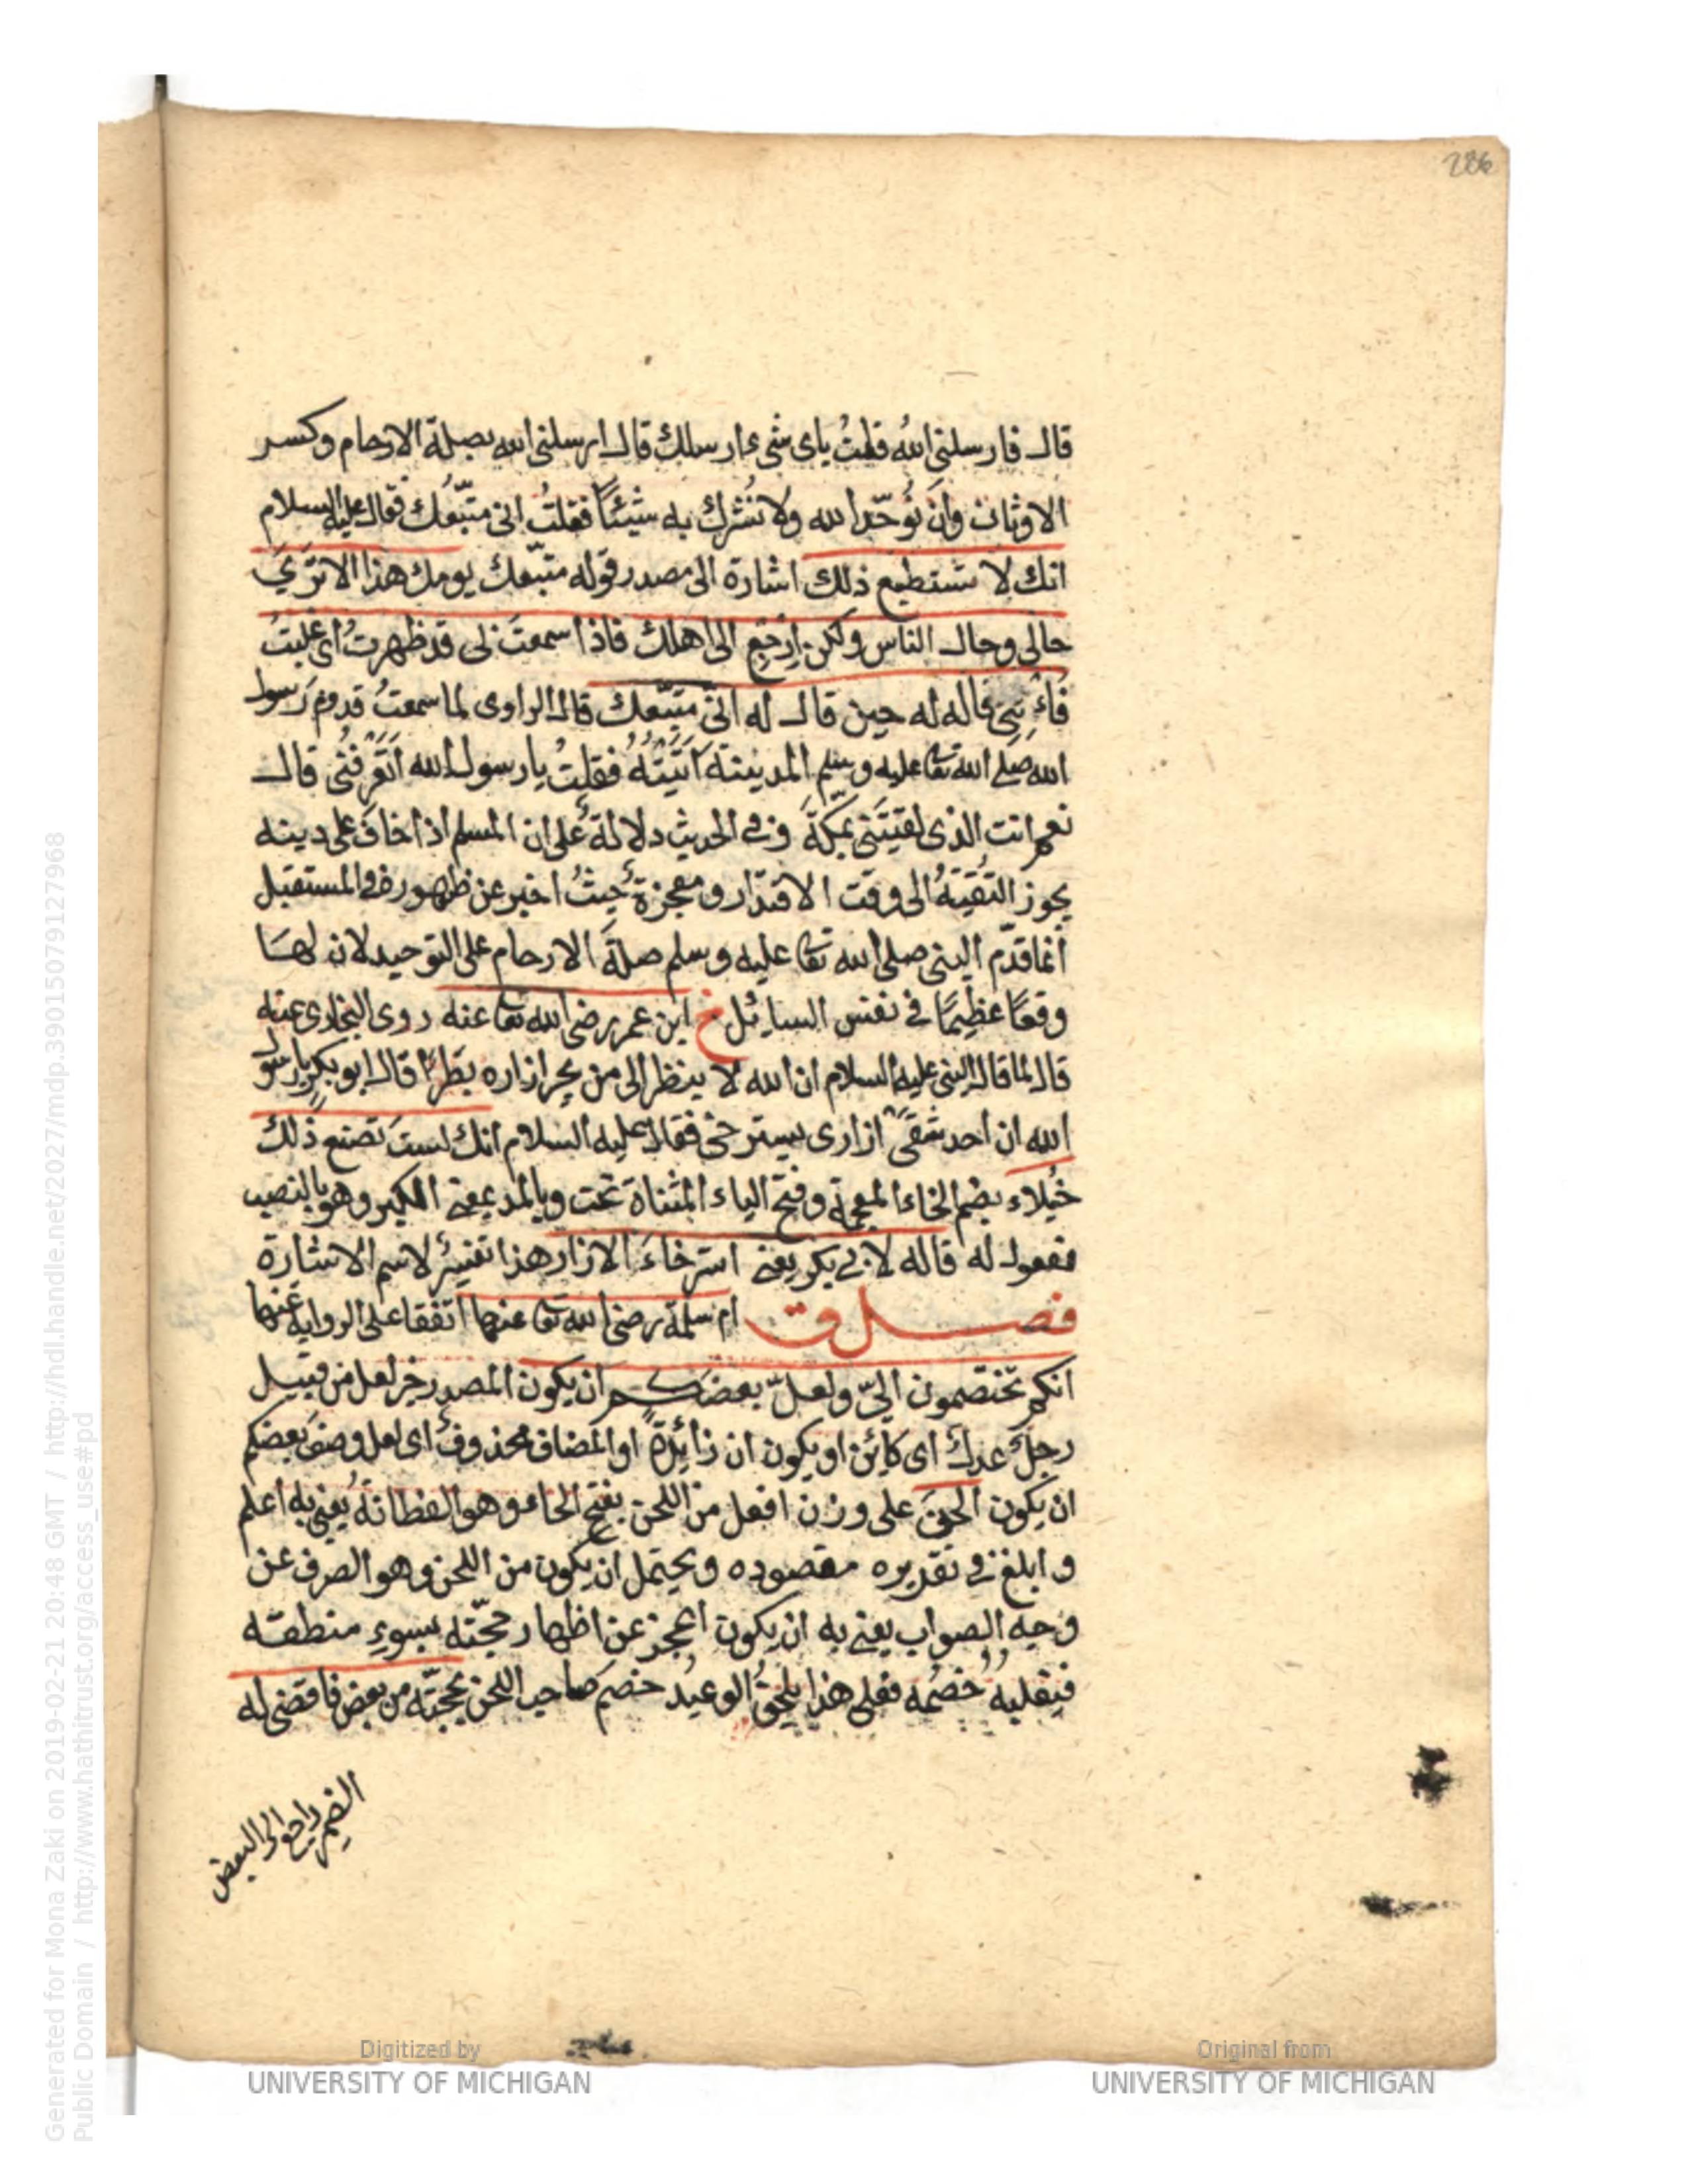 286
قال فارسلنى اللهُ فقلتُ باى شىء ارسلك قال ارسلنى الله بصلة الارحام وكسر
الاوثان وان نُوحّد الله ولا نُشرك به شيئًا فقلتُ انى متّبعُك فقال عليه السلام
انك لا تستطيع ذلك اشارة الى مصدر قوله متبّعك يومك هذا الا ترَى
حالى وحال الناس ولكن ارجع الى اهلك فاذا سمعتَ بى قد ظهرتُ اى غلبتُ
فاءتنى قاله له حين قال له انّى متبّعك قال الراوى لما سمعتُ قدوم رسول
الله صلى الله تعا عليه وسلم المدينة اتيتُهُ فقلتُ يا رسول الله اتَعرفُنى قال
نعم انت الذى لقيتَنى بمكّةَ وفى الحديث دلالةٌ على ان المسلم اذا خافَ على دينه
يجوز التقيّةُ الى وقت الاقتدار ومعجزةٌ حيثُ اخبر عن ظهوره فى المستقبل
انما قدّم النبى صلى الله تعا عليه وسلم صلةَ الارحام على التوحيد لان لها
وقعًا عظيمًا فى نفس السائل خ ابن عمر رضى الله تعا عنه روى البخارى عنه
قال لما قال النبى عليه السلام ان الله لا ينظر الى من يجر ازاره بَطَرًا قال ابو بكرٍ يا رسول
الله ان احد شقَّى ازارى يسترخى فقال عليه السلام انك لستَ تصنع ذلك
خيُلاء بضم الخاء المعجمة وفتح الياء المثناة تحت وبالمد بمعنى الكبر وهو بالنصب
مفعول له قاله لابى بكر يعنى استرخاءَ الازار هذا تفسيرٌ لاسم الاشارة
فصل ق ام سلمة رضى الله تعا عنها اتفقا على الرواية عنها
انكم تختصمون الىّ ولعلّ بعضكم ان يكون المصدر خبر لعل من قبيل
رجلٌ عدلٌ اى كائن او يكون ان زائدةً او المضاف محذوفٌ اى لعل وصفَ بعضكم
ان يكون الحنَ على وزن افعل من اللحن بفتح الحاء وهو الفطانةُ يعنى به اعلم
وابلغ فى تقديره مقصوده ويحتمل ان يكون من اللحن وهو الصرف عن
وجه الصواب يعنى به ان يكون اعجز عن اظهار حجّته بسوء منطقه
فيغلبهُ خصُمه فعلى هذا يلحقُ الوعيدُ خصم صاحب اللحن بحجّته من بعض فاقضى له
الضمير راجع الى البعض
Generated for Mona Zaki on 2019-02-21 20:48 GMT / http://hdl.handle.net/2027/mdp.39015079127968
Public Domain / http://www.hathitrust.org/access_use#pd
Digitized by
UNIVERSITY OF MICHIGAN
Original from
UNIVERSITY OF MICHIGAN